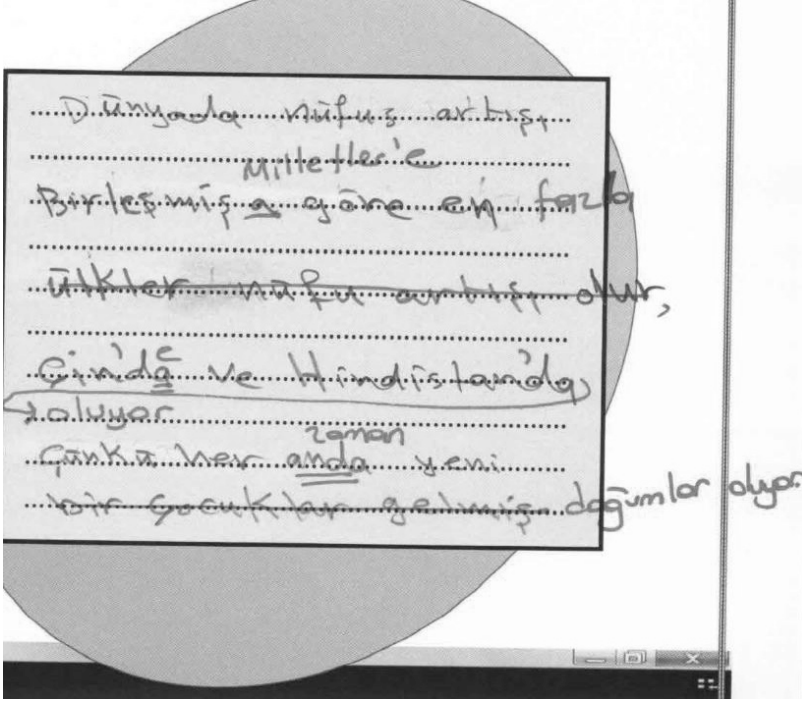 Dünyada nüfus artışı
Milletler'e
Birleşmiş a göre en fazla
ülkler nüfu artışı olur,
Çin'da e ve Hindistan'da,
oluyor
zaman
Çünkü her anda yeni
bir çocuklar gelmiş. doğumlar oluyor